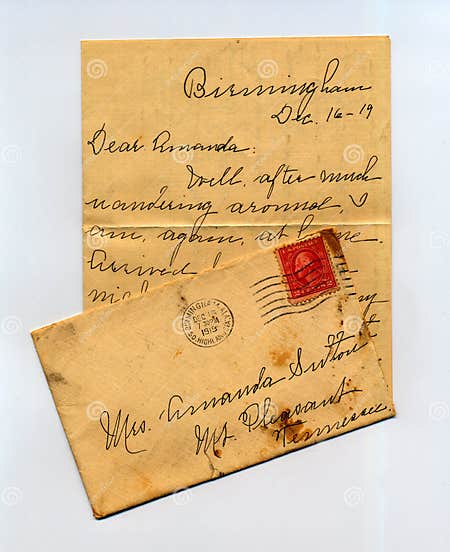 Birmingham
Dec. 16-19
Dear Amanda:
Well, after much
wandering around, I
am, again, at home.
Arrived
BIRMINGHAM, ALA.
DEC 16
7 30 PM
1919
SO. HIGHLAND
Mrs. Amanda Sutton
Mt. Pleasant
Tennessee